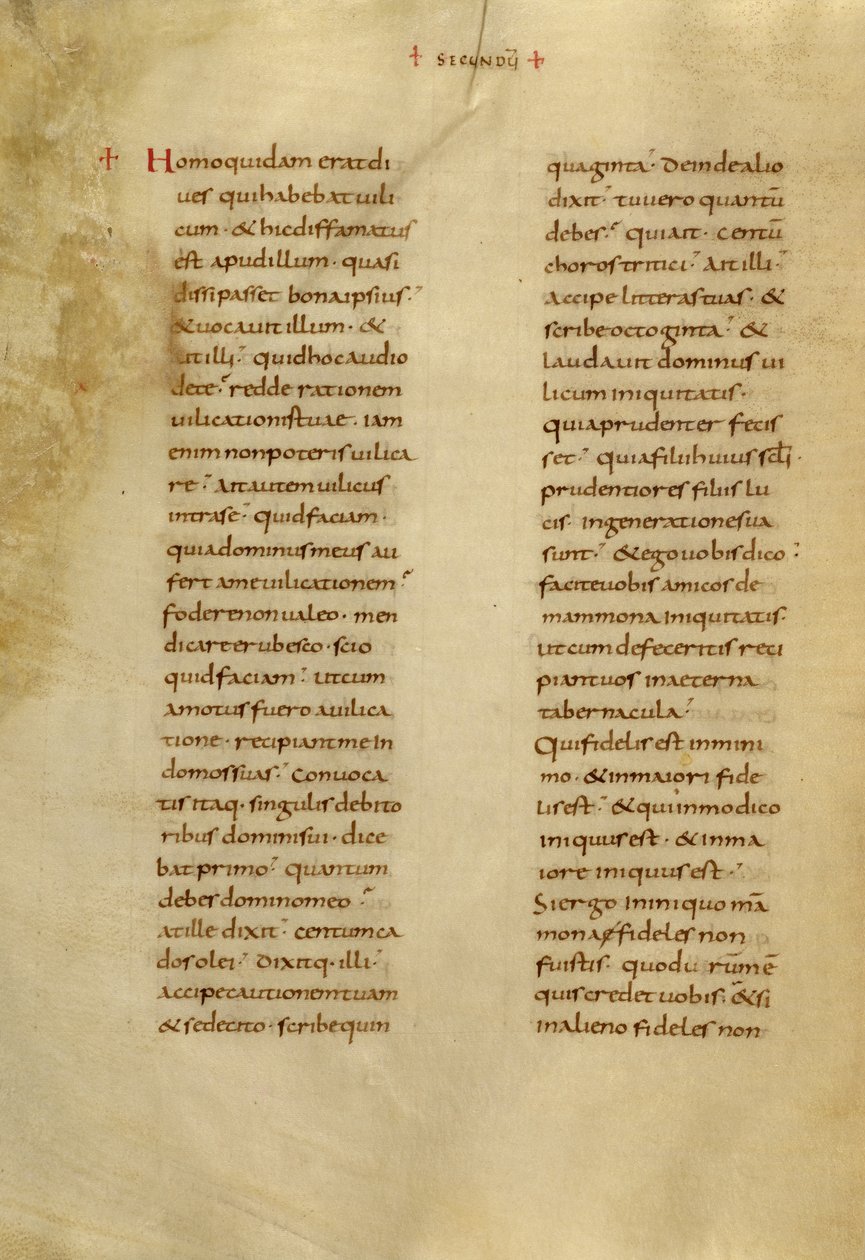 + SECUNDŪ +
+ Homo quidam erat di
ues qui habebat uili
cum · & hic diffamatus
est apud illum · quasi
dissipasset bona ipsius ·
& uocauit illum · &
ait illi · quid hoc audio
de te · redde rationem
uilicationis tuae · iam
enim non poteris uilica
re · Ait autem uilicus
intra se · Quid faciam ·
quia dominus meus au
fert a me uilicationem ·
fodere non ualeo · men
dicare erubesco · scio
quid faciam · ut cum
amotus fuero a uilica
tione · recipiant me In
domos suas · Conuoca
tis itaq · singulis debito
ribus domini sui · dice
bat primo · Quantum
debes domino meo ·
at ille dixit · centum ca
dos olei · Dixitq · illi ·
Accipe cautionem tuam
& sede cito · scribe quin
quaginta · Deinde alio
dixit · tu uero quantū
debes · Qui ait · Centū
choros tritici · Ait illi ·
Accipe litteras tuas · &
scribe octoginta · &
laudauit dominus ui
licum iniquitatis ·
quia prudenter fecis
set · Quia filii huius scłi ·
prudentiores filiis lu
cis · in generatione sua
sunt · & ego uobis dico :
facite uobis amicos de
mammona iniquitatis ·
ut cum defeceritis reci
piant uos in aeterna
tabernacula ·
Qui fidelis est in mini
mo · & in maiori fide
lis est · & qui in modico
iniquus est · & in ma
iore iniquus est ·
Si ergo in iniquo mā
mona fideles non
fuistis · quod u̅ rūm ē
quis credet uobis · & si
in alieno fideles non